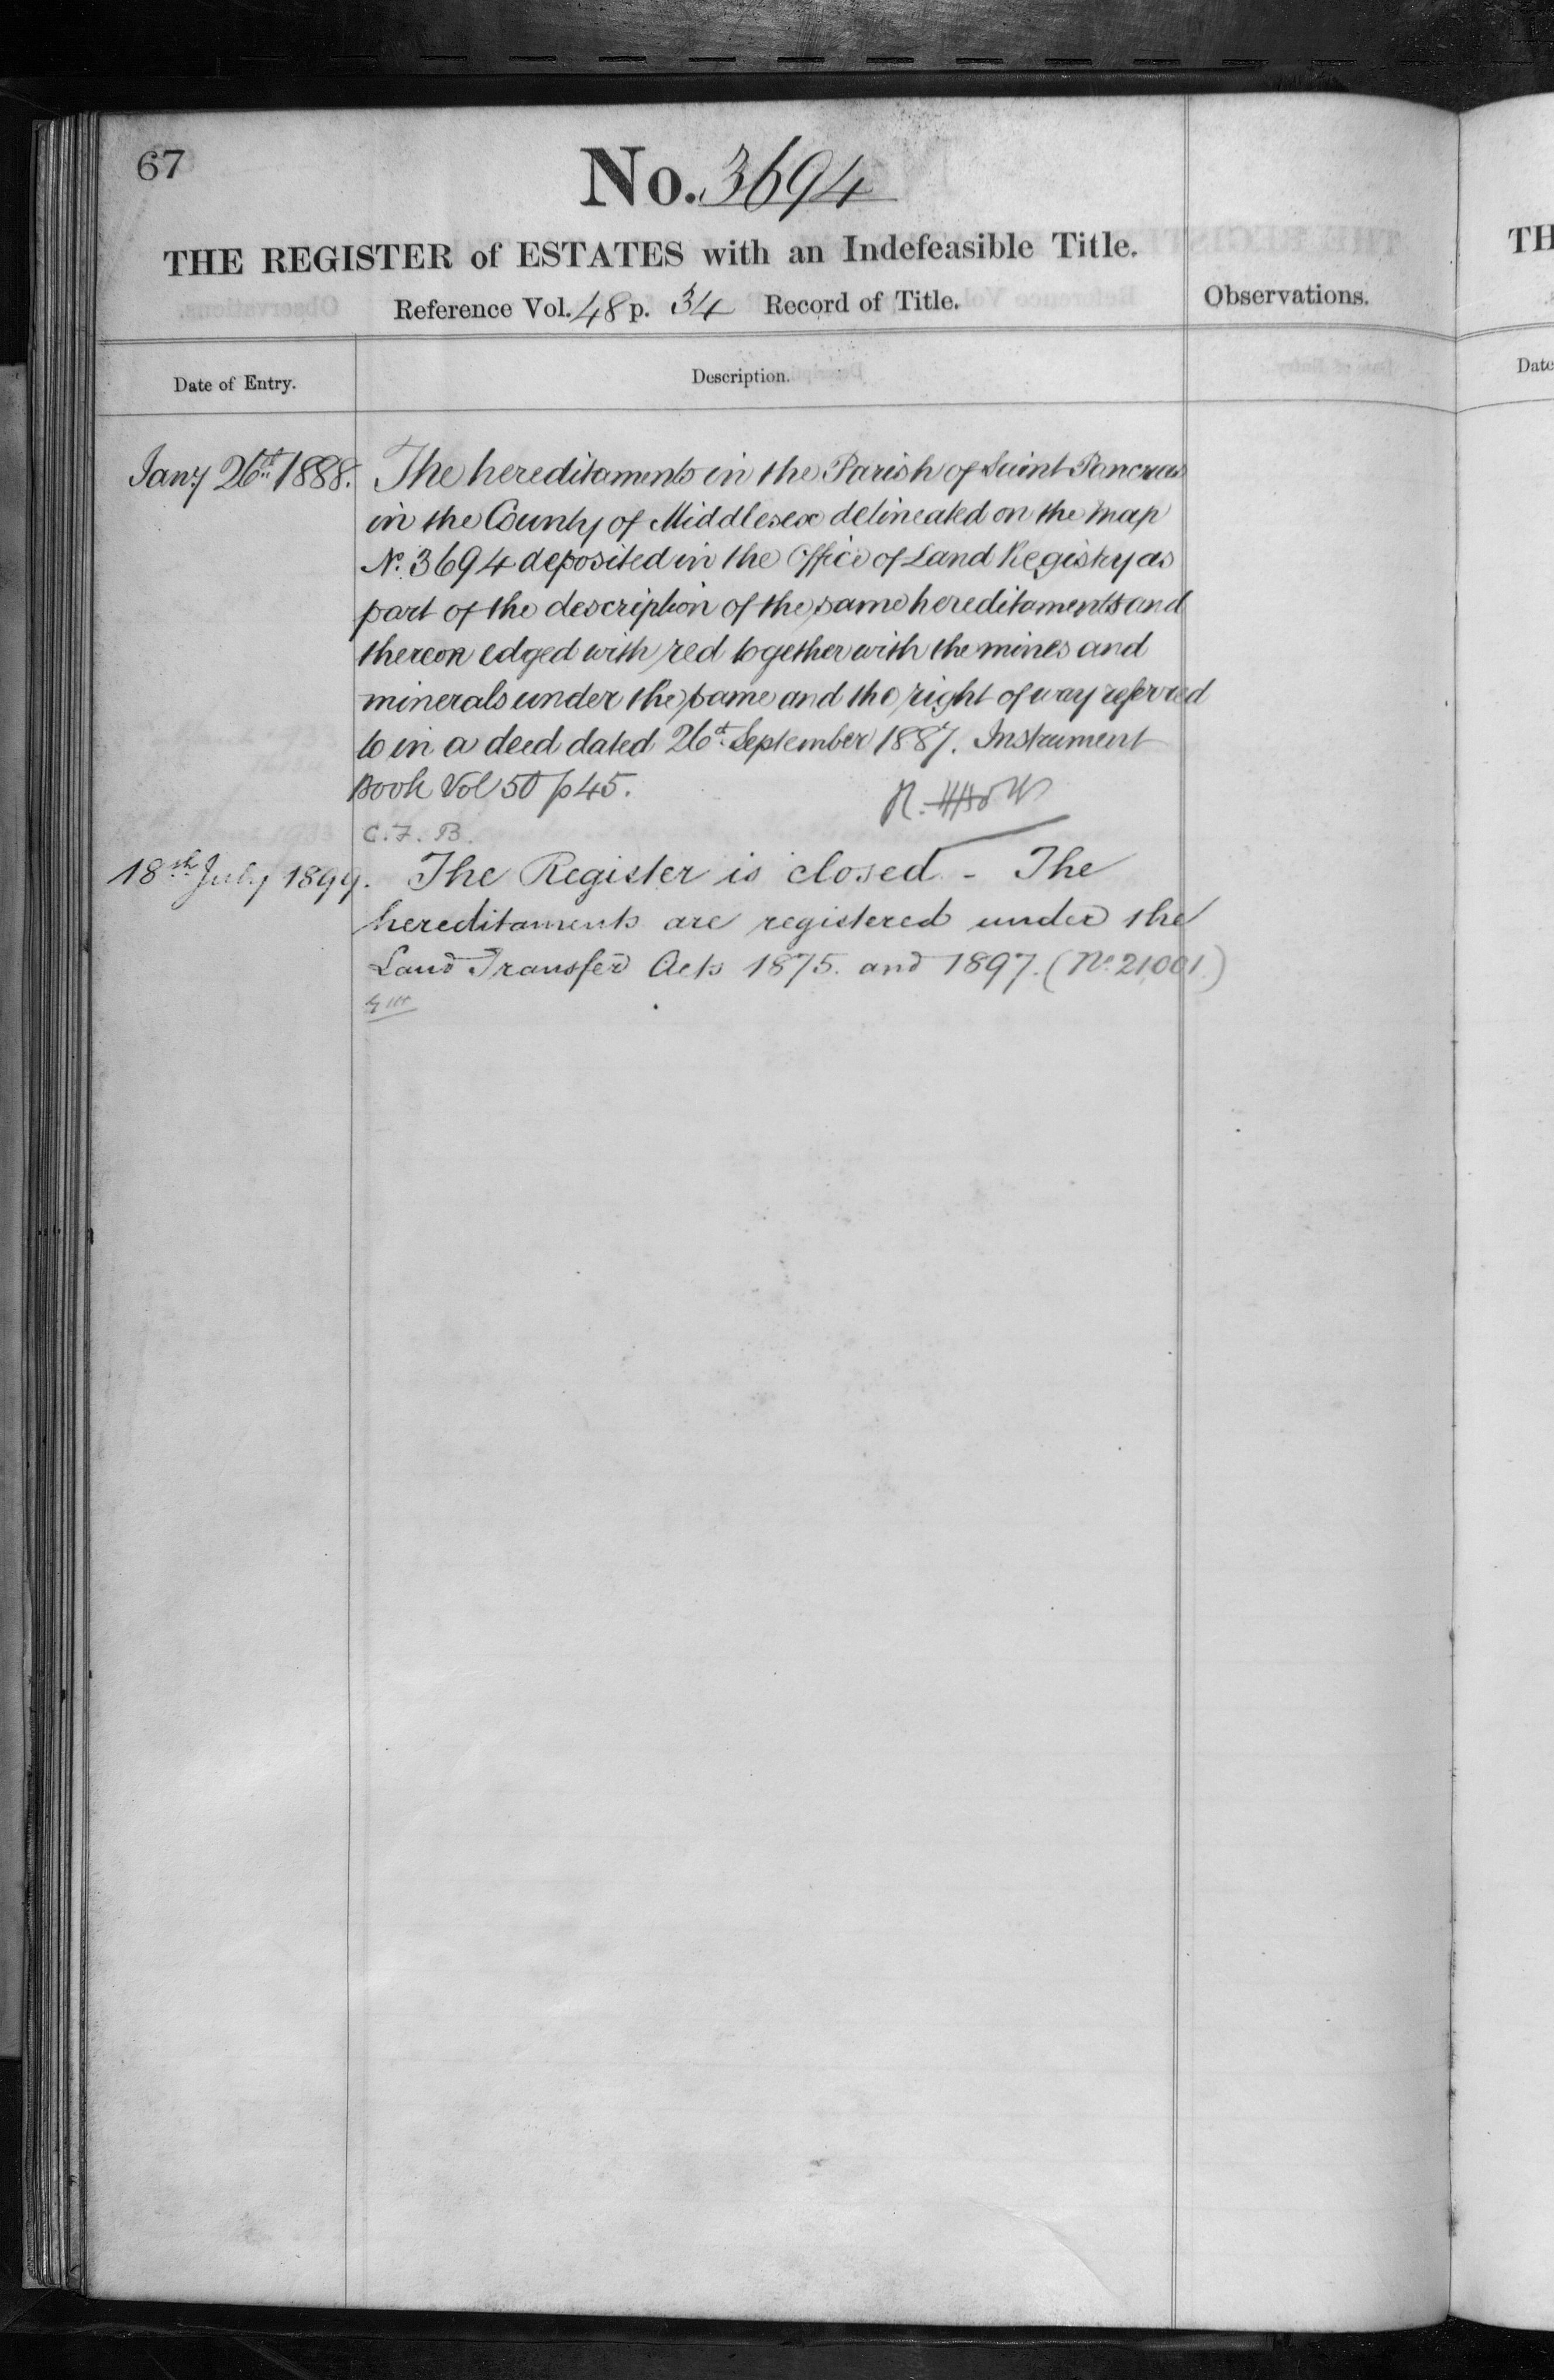 67
No. 3694
THE REGISTER of ESTATES with an Indefeasible Title.
Reference Vol. 48 p. 34 Record of Title.
Observations.
Date of Entry.
Description.
Jany 26th 1888.
The hereditaments in the Parish of Saint Pancras
in the County of Middlesex delineated on the map
No. 3694 deposited in the Office of Land Registry as
part of the description of the same hereditaments and
thereon edged with red together with the mines and
minerals under the same and the right of way referred
to in a deed dated 26th September 1887. Instrument
Book Vol 50 p 45.
C. F. B.
18th July 1899.
The Register is closed - The
hereditaments are registered under the
Land Transfer Acts 1875. and 1897. (No. 21001.)
TH
Date